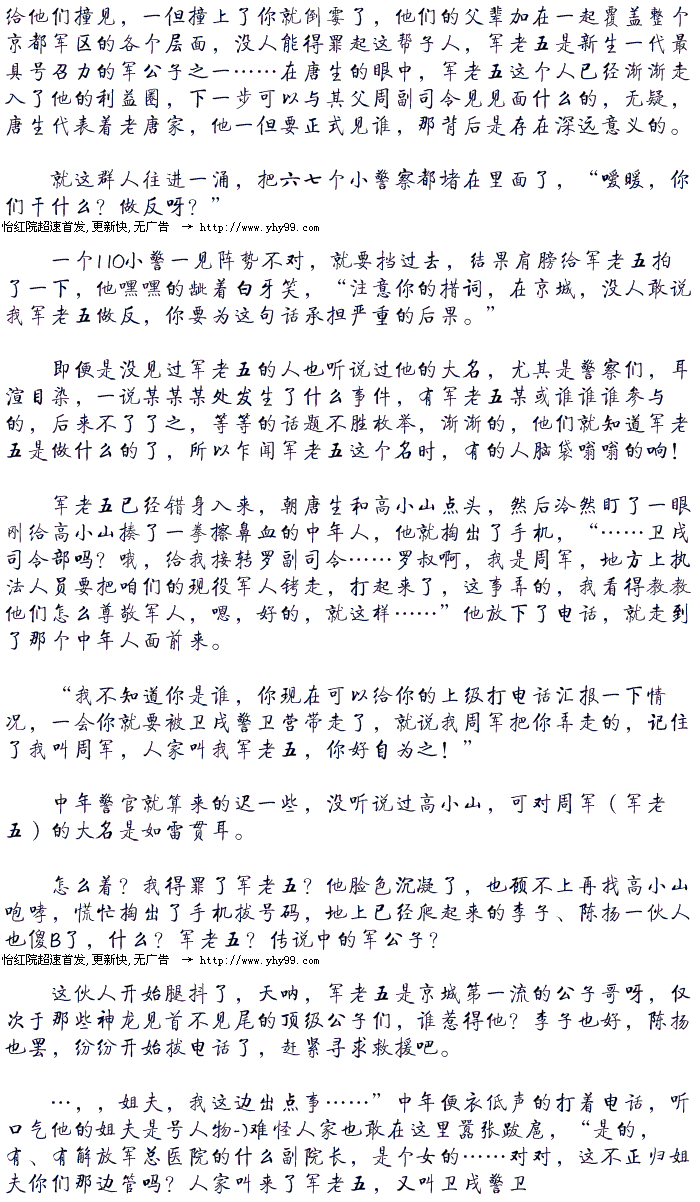 给他们撞见，一但撞上了你就倒霉了，他们的父辈加在一起覆盖整个
京都军区的各个层面，没人能得罪起这帮子人，军老五是新生一代最
具号召力的军公子之一……在唐生的眼中，军老五这个人已经渐渐走
入了他的利益圈，下一步可以与其父周副司令见见面什么的，无疑，
唐生代表着老唐家，他一但要正式见谁，那背后是存在深远意义的。
就这群人往进一涌，把六七个小警察都堵在里面了，“嗳暖，你
们干什么？做反呀？”
怡红院超速首发,更新快,无广告 → http://www.yhy99.com
一个110小警一见阵势不对，就要挡过去，结果肩膀给军老五拍
了一下，他嘿嘿的龇着白牙笑，“注意你的措词，在京城，没人敢说
我军老五做反，你要为这句话承担严重的后果。”
即便是没见过军老五的人也听说过他的大名，尤其是警察们，耳
渲目染，一说某某某处发生了什么事件，有军老五某或谁谁谁参与
的，后来不了了之，等等的话题不胜枚举，渐渐的，他们就知道军老
五是做什么的了，所以乍闻军老五这个名时，有的人脑袋嗡嗡的响！
军老五已经错身入来，朝唐生和高小山点头，然后冷然盯了一眼
刚给高小山揍了一拳擦鼻血的中年人，他就掏出了手机，“……卫戍
司令部吗？哦，给我接转罗副司令……罗叔啊，我是周军，地方上执
法人员要把咱们的现役军人铐走，打起来了，这事弄的，我看得教教
他们怎么尊敬军人，嗯，好的，就这样……”他放下了电话，就走到
了那个中年人面前来。
“我不知道你是谁，你现在可以给你的上级打电话汇报一下情
况，一会你就要被卫戍警卫营带走了，就说我周军把你弄走的，记住
了我叫周军，人家叫我军老五，你好自为之！”
中年警官就算来的迟一些，没听说过高小山，可对周军（军老
五）的大名是如雷贯耳。
怎么着？我得罪了军老五？他脸色沉凝了，也顾不上再找高小山
咆哮，慌忙掏出了手机拨号码，地上已经爬起来的李子、陈扬一伙人
也傻B了，什么？军老五？传说中的军公子？
怡红院超速首发,更新快,无广告 → http://www.yhy99.com
这伙人开始腿抖了，天呐，军老五是京城第一流的公子哥呀，仅
次于那些神龙见首不见尾的顶级公子们，谁惹得他？李子也好，陈扬
也罢，纷纷开始拔电话了，赶紧寻求救援吧。
…，，姐夫，我这边出点事……”中年便衣低声的打着电话，听
口气他的姐夫是号人物-)难怪人家也敢在这里嚣张跋扈，“是的，
有、有解放军总医院的什么副院长，是个女的……对对，这不正归姐
夫你们那边管吗？人家叫来了军老五，又叫卫戍警卫